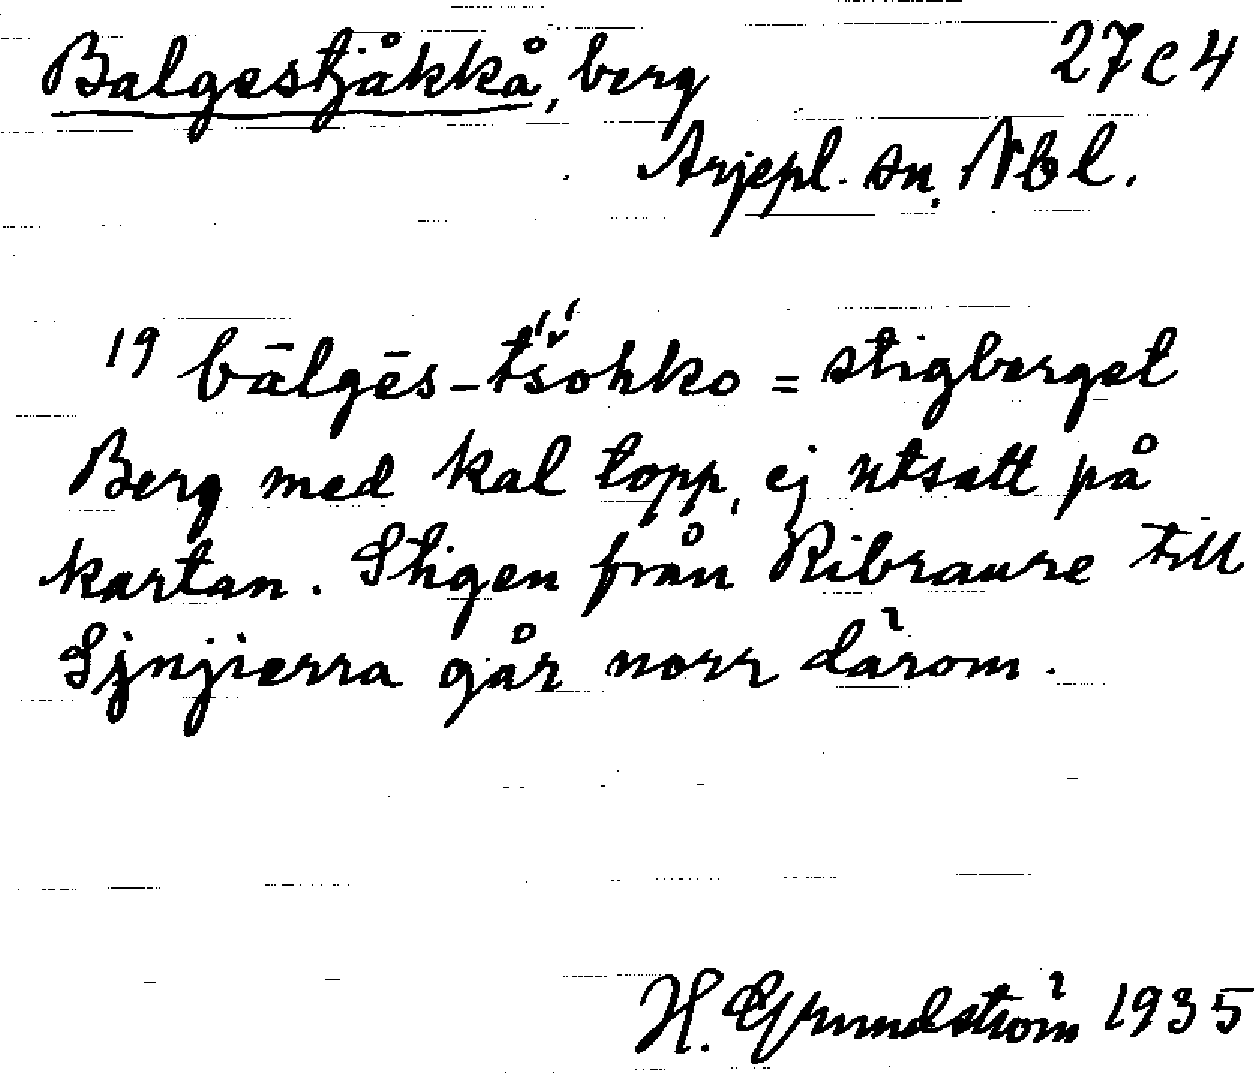 Balgestjåkkå, berg 27 c 4
Arjepl. sn. Nbl.
19 bālgēs-tšohko = stigberget
Berg med kal topp, ej utsatt på
kartan. Stigen från Ribraure till
Sjnjierra går norr därom.
H. Grundström 1935